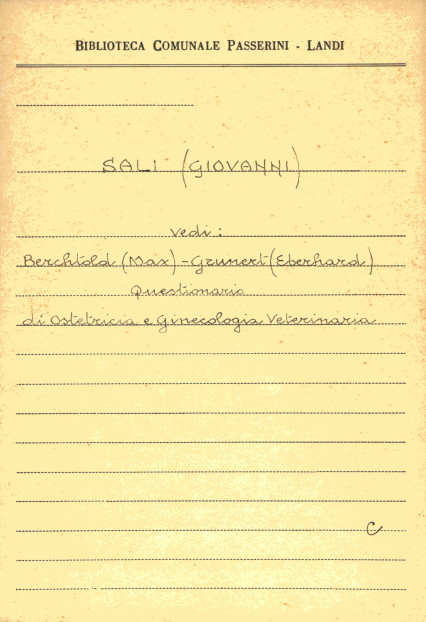 BIBLIOTECA COMUNALE PASSERINI - LANDI
SALI (GIOVANNI)
vedi:
Berchtold (Max) - Grunert (Eberhard)
Questionario
di Ostetricia e Ginecologia Veterinaria
C